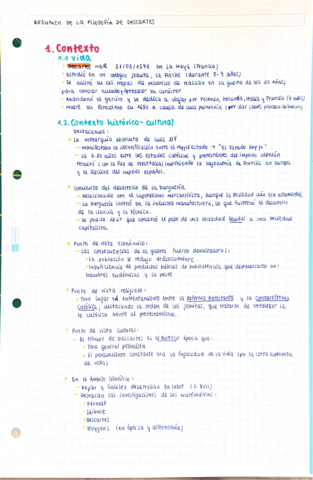 RESUMEN DE LA FILOSOFÍA DE DESCARTES
1. Contexto
1.1 Vida
Descartes nace 31/03/1596 en La Haya (Francia)
Estudió en un colegio jesuita, La Flèche (durante 8-9 años)
Se alistó en las tropas de Mauricio de Nassau en la guerra de los 30 años,
para conocer mundo y
Abandonó el ejército y se dedica a viajar por Polonia, Holanda, Italia y Francia (9 años)
Muere en Estocolmo en 1650 a causa de una pulmonía
1.2. Contexto histórico-cultural
Destacamos:
La monarquía absoluta de Luis XIV
Manifestaba la identificación entre el rey y el estado → "El estado soy yo."
La G. 30 años entre los estados católicos y protestantes del imperio alemán
terminó con la Paz de Westfalia, imponiendo la hegemonía de Francia en Europa
y el declive del imperio español.
Comienzo del desarrollo de la burguesía
Relacionada con el capitalismo mercantilista, aunque la sociedad aún era estamental
La burguesía invirtió en la industria manufacturera, lo que favoreció el desarrollo
de la ciencia y la técnica.
Se puede decir que comenzó el paso de una sociedad feudal a una sociedad
capitalista.
Punto de vista económico:
Las consecuencias de la guerra fueron devastadoras:
La población se redujo drásticamente
Insuficiencia de productos básicos de subsistencia que desembocaron en
hambres endémicas y la peste
Punto de vista religioso:
Tuvo lugar el enfrentamiento entre la Reforma Protestante y la Contrarreforma
Católica, destacando la orden de los jesuitas, que trataron de fortalecer la
fe católica frente al protestantismo.
Punto de vista cultural:
El tiempo de Descartes es el Barroco época que:
Tono general pesimista
El pensamiento constante era la fugacidad de la vida (por la corta esperanza
de vida)
En el ámbito científico:
Kepler y Galileo desarrollan su labor
Destacan las investigaciones de los matemáticos:
Fermat
Leibniz
Descartes
Huygens (en óptica y astronomía)